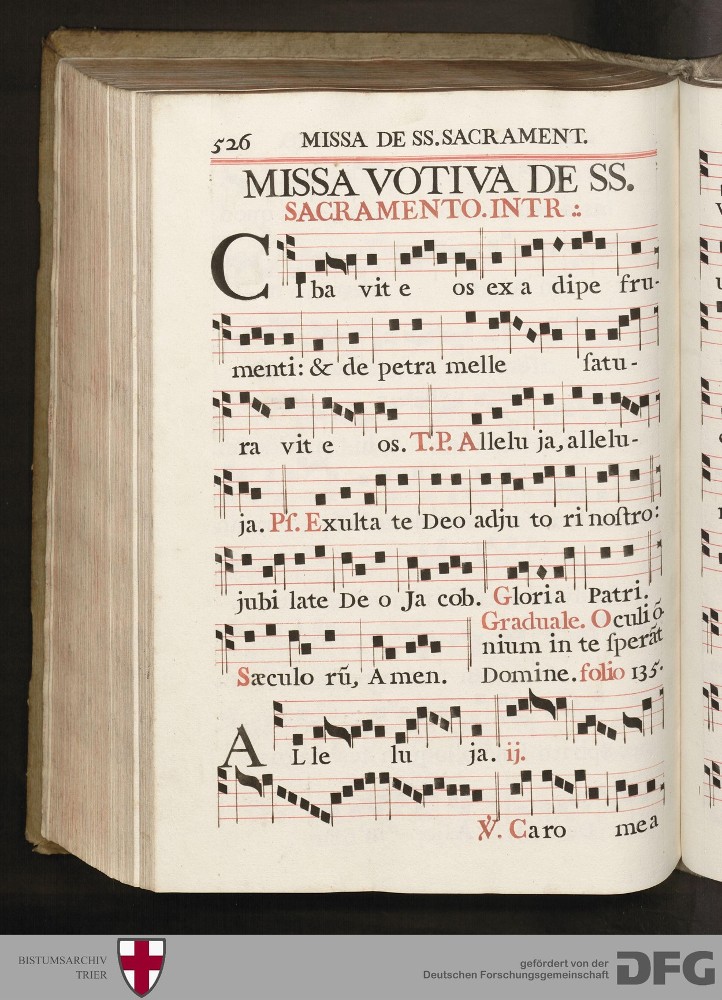 526 MISSA DE SS. SACRAMENT.
MISSA VOTIVA DE SS.
SACRAMENTO. INTR :.
CIba vit e os ex a dipe fru-
menti: & de petra melle ſatu-
ra vit e os. T.P. Allelu ja, allelu-
ja. Pſ. Exulta te Deo adju to ri noſtro:
jubi late De o Ja cob. Gloria Patri.
Graduale. Oculi õ-
nium in te ſperāt
Sæculo rũ, Amen. Domine. folio 135.
ALle lu ja. ij.
℣. Caro mea
BISTUMSARCHIV
TRIER
gefördert von der
Deutschen Forschungsgemeinschaft
DFG